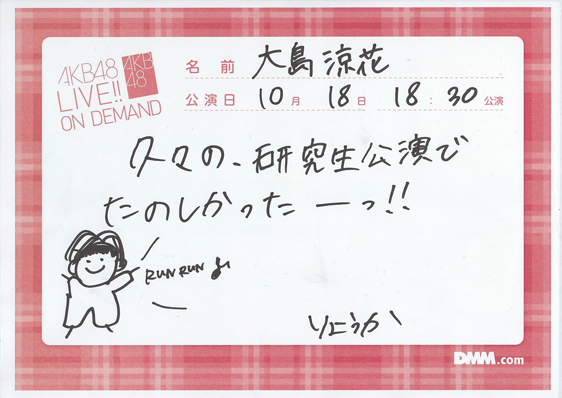 AKB48
LIVE!!
ON DEMAND
AKB
48
名 前 大島涼花
公演日 10月 18日 18:30公演
久々の、研究生公演で
たのしかったーっ!!
RUN RUN ♪
りょうか
DMM.com